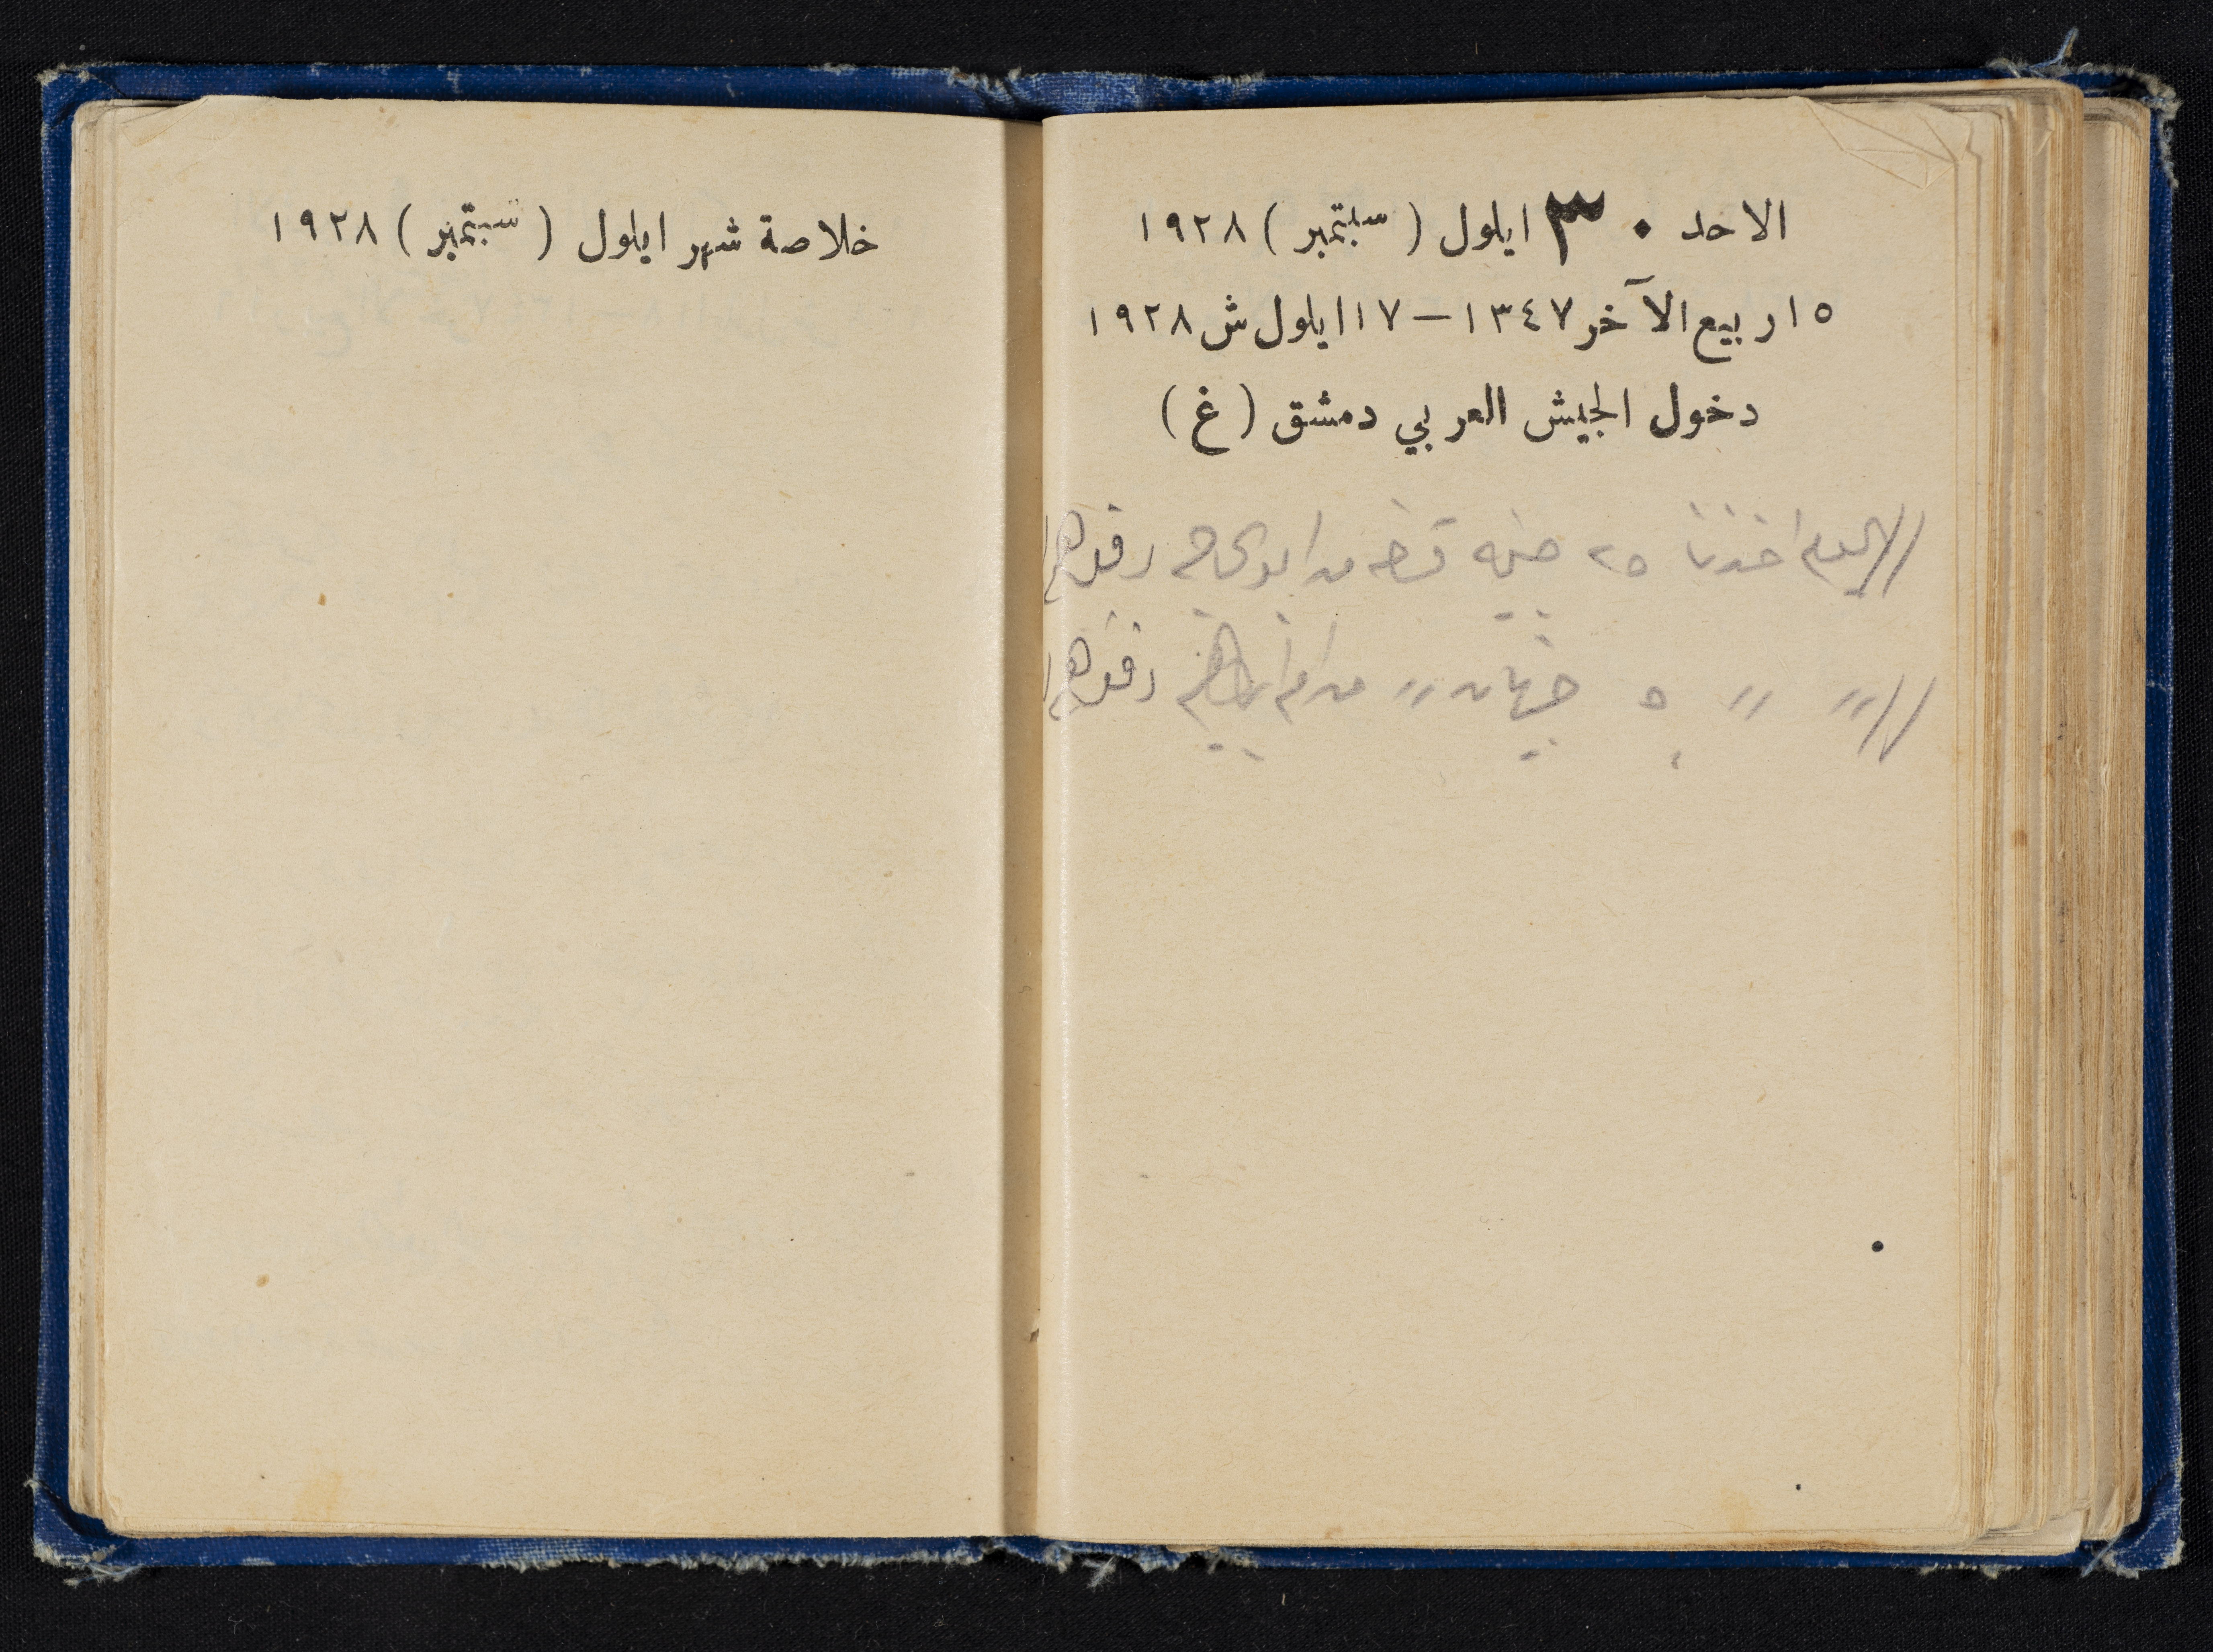 الاحد ٣٠ ايلول (سبتمبر) ١٩٢٨
١٥ ربيع الآخر ١٣٤٧ — ١٧ ايلول ش ١٩٢٨
دخول الجيش العربي دمشق (غ)
// اليوم اخذنا ٢٥ جنيه قرضه من
// 〃 〃 ٥ جنيهات 〃 من ام ابراهيم
خلاصة شهر ايلول (سبتمبر) ١٩٢٨